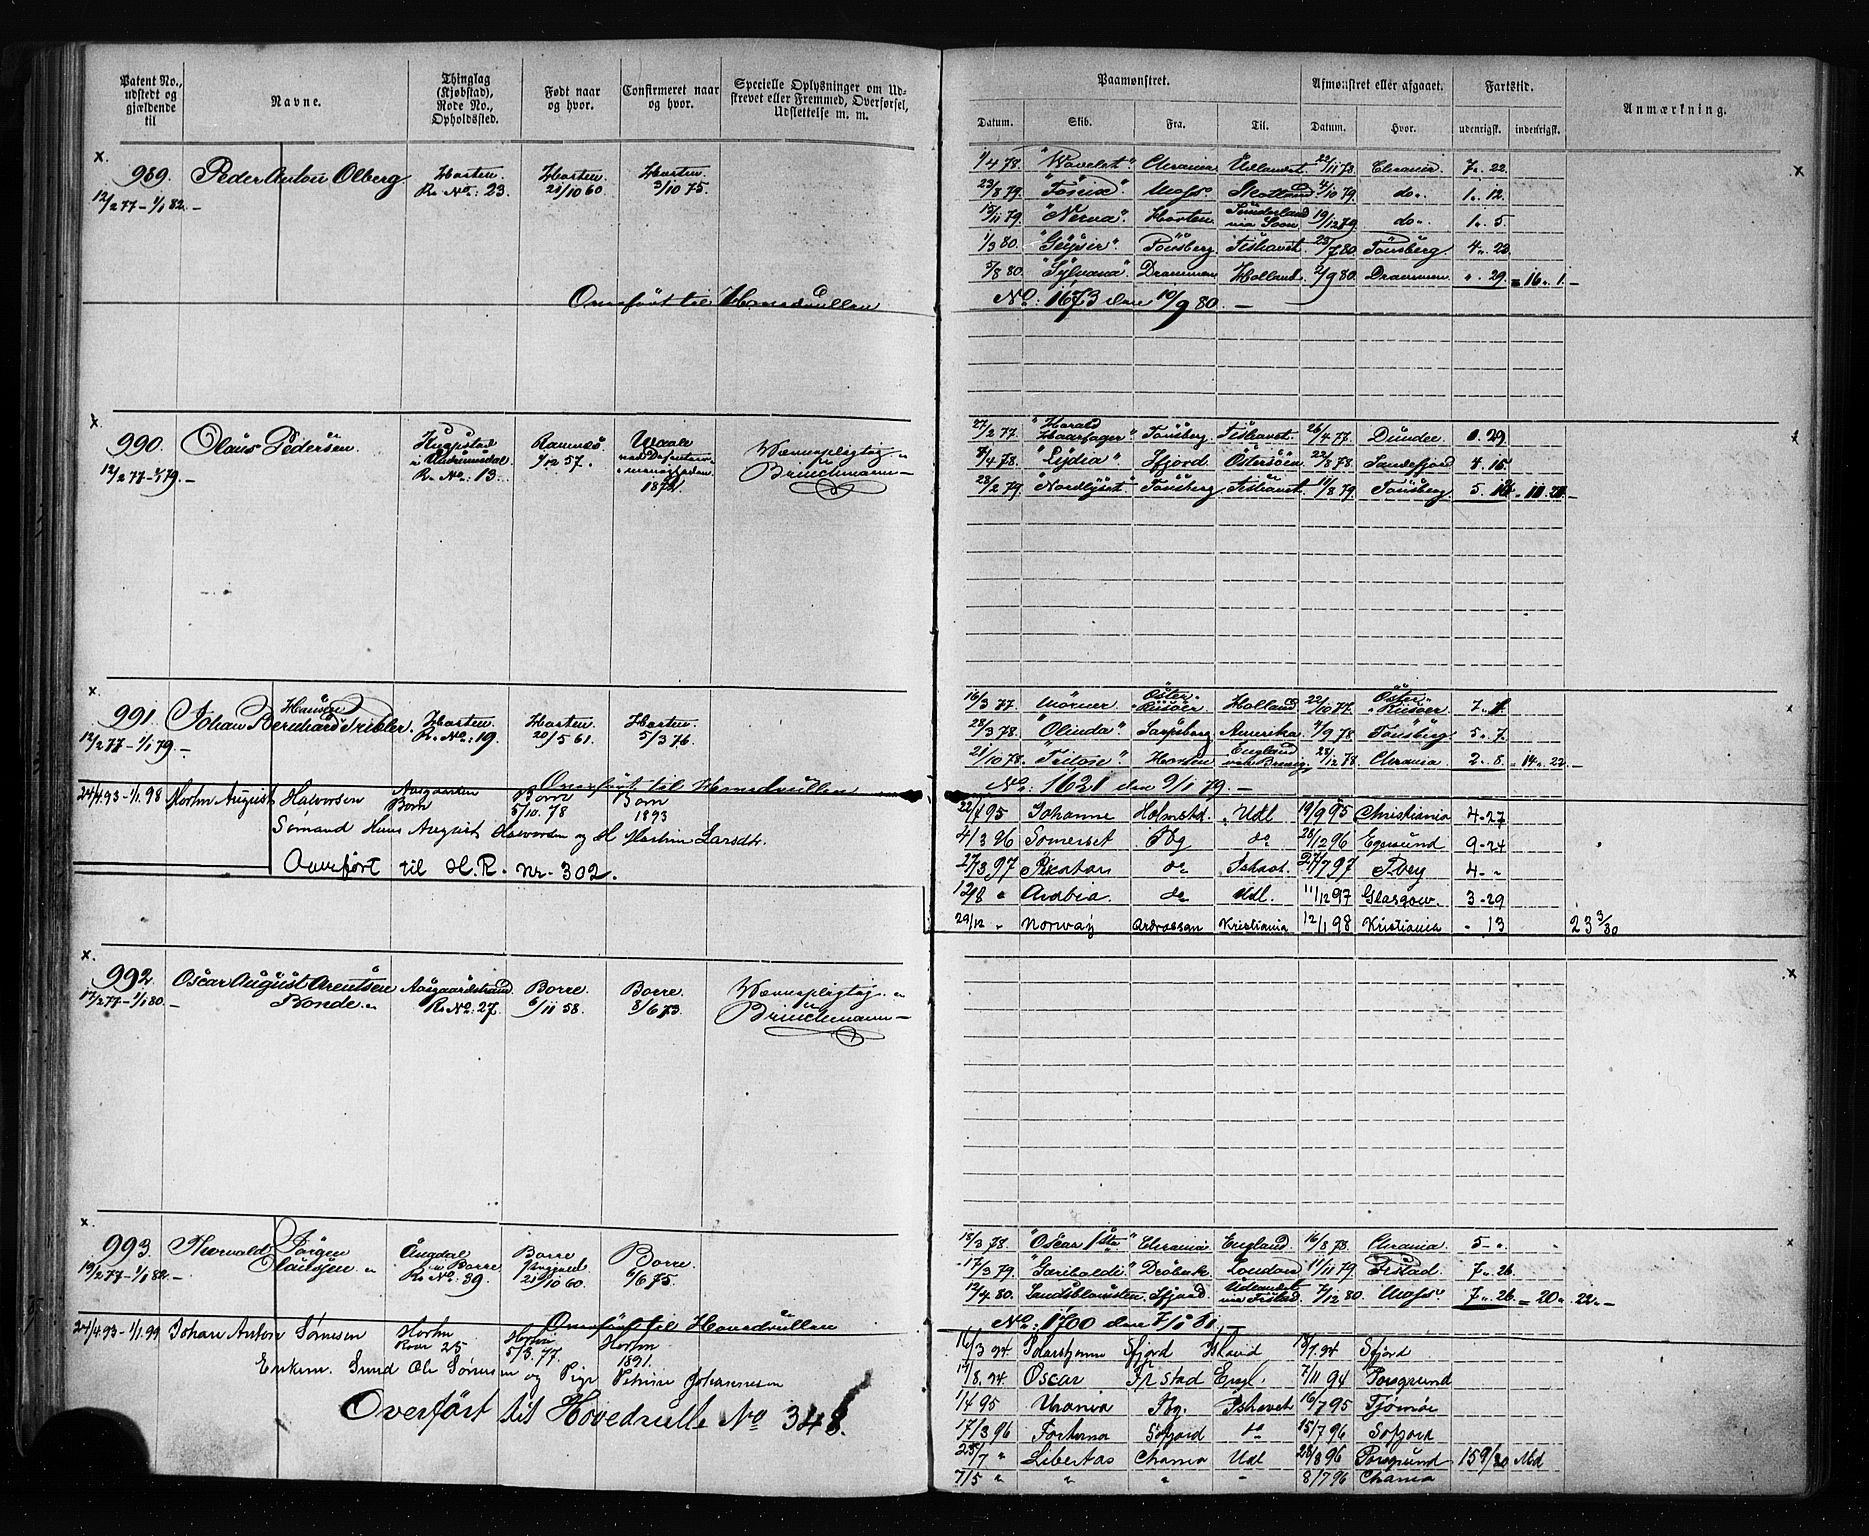 Patent No., udstedt og gjældende til
Navne.
Thinglag (Kjøbstad), Rode No., Opholdssted.
Født naar og hvor.
Confirmeret naar og hvor.
Specielle Oplysninger om Udskrevet eller Fremmed, Overførsel, Udslettelse m. m.
Paamønstret.
Afmønstret eller afgaaet.
Fartstid.
Anmærkning.
Datum. Skib. Fra. Til. Datum. Hvor. udenrigsk. indenrigsk.
x
989. Peder Anton Olberg Horten Horten Horten
12/2 77 - 1/1 82. R. No: 23 28/10 60 3/10 75.
1/4 78. "Wavelet" Chrania Udlandet 22/11 78. Chrania 7 „ 22.
23/8 79. Moss 4/10 79. do 1 „ 12.
15/11 79. "Nerva" Horten Sunderland via Soon 19/12 79 do 1 „ 5.
1/3 80. "Geysir" Tönsberg Ishavet 23/7 80 Tönsberg 4 „ 23
5/8 80. "Sylvana" Drammen Holland 2/9 80. Drammen „ 29 = 16 „ 1 -
Overført til Hovedrullen No: 1673 den 10/9 80. -
x
990. Olaus Pedersen Ramnæs Vaale Værnepligtig
12/2 77 - 1/1 79. R. No: 13. 1/12 57. Brinchmann
27/2 77. "Harald Haarfager" Tönsberg Ishavet. 26/4 77. Dundee 0. 29
8/4 78. "Lydia" Sfjord Östersöen 22/8 78. Sandefjord 4. 15
28/2 79. "Nordlyset" Tönsberg Ishavet 11/8 79. Tönsberg
x
991. Johan Bernhard Hansen Tribler. Horten Horten Horten
12/2 77 - 1/1 79. R. No: 19. 20/5 61. 5/3 76.
16/3 77. Mörner Öster-Riisöer Holland 22/10 77. Öster-Riisöer
28/3 78. "Olinda" Sarpsborg Amerika 4/9 78 Tönsberg 5 „ 7.
21/10 78. Horten England 28/12 78 Chrania 2 „ 8. = 14 „ 22. -
Overført til Hovedrullen No: 1621 den 9/1 79. -
24/4 93 - 1/1 98 Morten August Halvorsen Aasgaarden Borre Borre Borre
5/10. 78 1893
Sømand Hans August Halvorsen og H. Martin Larsdtr.
Overført til H. R. nr. 302.
22/1 95 Johanne Holmstd. Udl 19/9 95 Christiania 4-27
4/3 96 Somerset Tbg do 28/12 96 Egersund 9-24
27/3 97 do Ishavet 27/7 97 Tbg 4-„
12/8 „ Arabia do Udl. 11/12 97 Glasgow. 3-29
29/12 „ Norway Ardrossan Kristiania 12/1 98 Kristiania - 13 23 3/30
x
992. Oscar August Arentsen Bonde. Aasgaardstrand Borre. Borre. Værnepligtig
12/2 77 - 1/1 80. R. No: 27. 6/11 58. 8/6 73. Brinchmann
x
993. Thorvald Jörgen Borre Borre
19/2 77 - 1/1 82. R. No: 39. 21/10 60. 6/6 75.
13/3 78. "Oscar 1ste" Chrania England 16/8 78. Chrania 5 - „
17/3 79. "Garibaldi" Dröbak London 11/11 79 Fstad. 7 „ 26.
12/4 80. Landsblomsten Sfjord Udlandet via Fstad 7/12 80. Moss 7 „ 26 = 20 „ 22 „ -
Overført til Hovedrullen No: 1700 den 7/1 81. -
24/4 93 - 1/1 99 Johan Anton Sørensen Horten Horten Horten
Rode 25 5/3. 77. 1891.
Enkem. Smed Ole Sørensen og Pige Petrine Johannesen
Overført til Hovedrulle No 348.
16/3 94 Polarstjerne Sfjord Ishavet 13/7 94 Sfjord
17/8. 94 Oscar Fstad Engl. 7/11 94 Porsgrund
1/4 95 Urania Tbg. Ishavet 16/7 95 Tjømø
17/3 96 Fortuna Sfjord do 15/7 96 Sfjord
25/7 „ Libertas Chania Udl 28/8 96 Porsgrund 15 9/30 Md
7/5 „ „ „ - 8/7 96 Chania